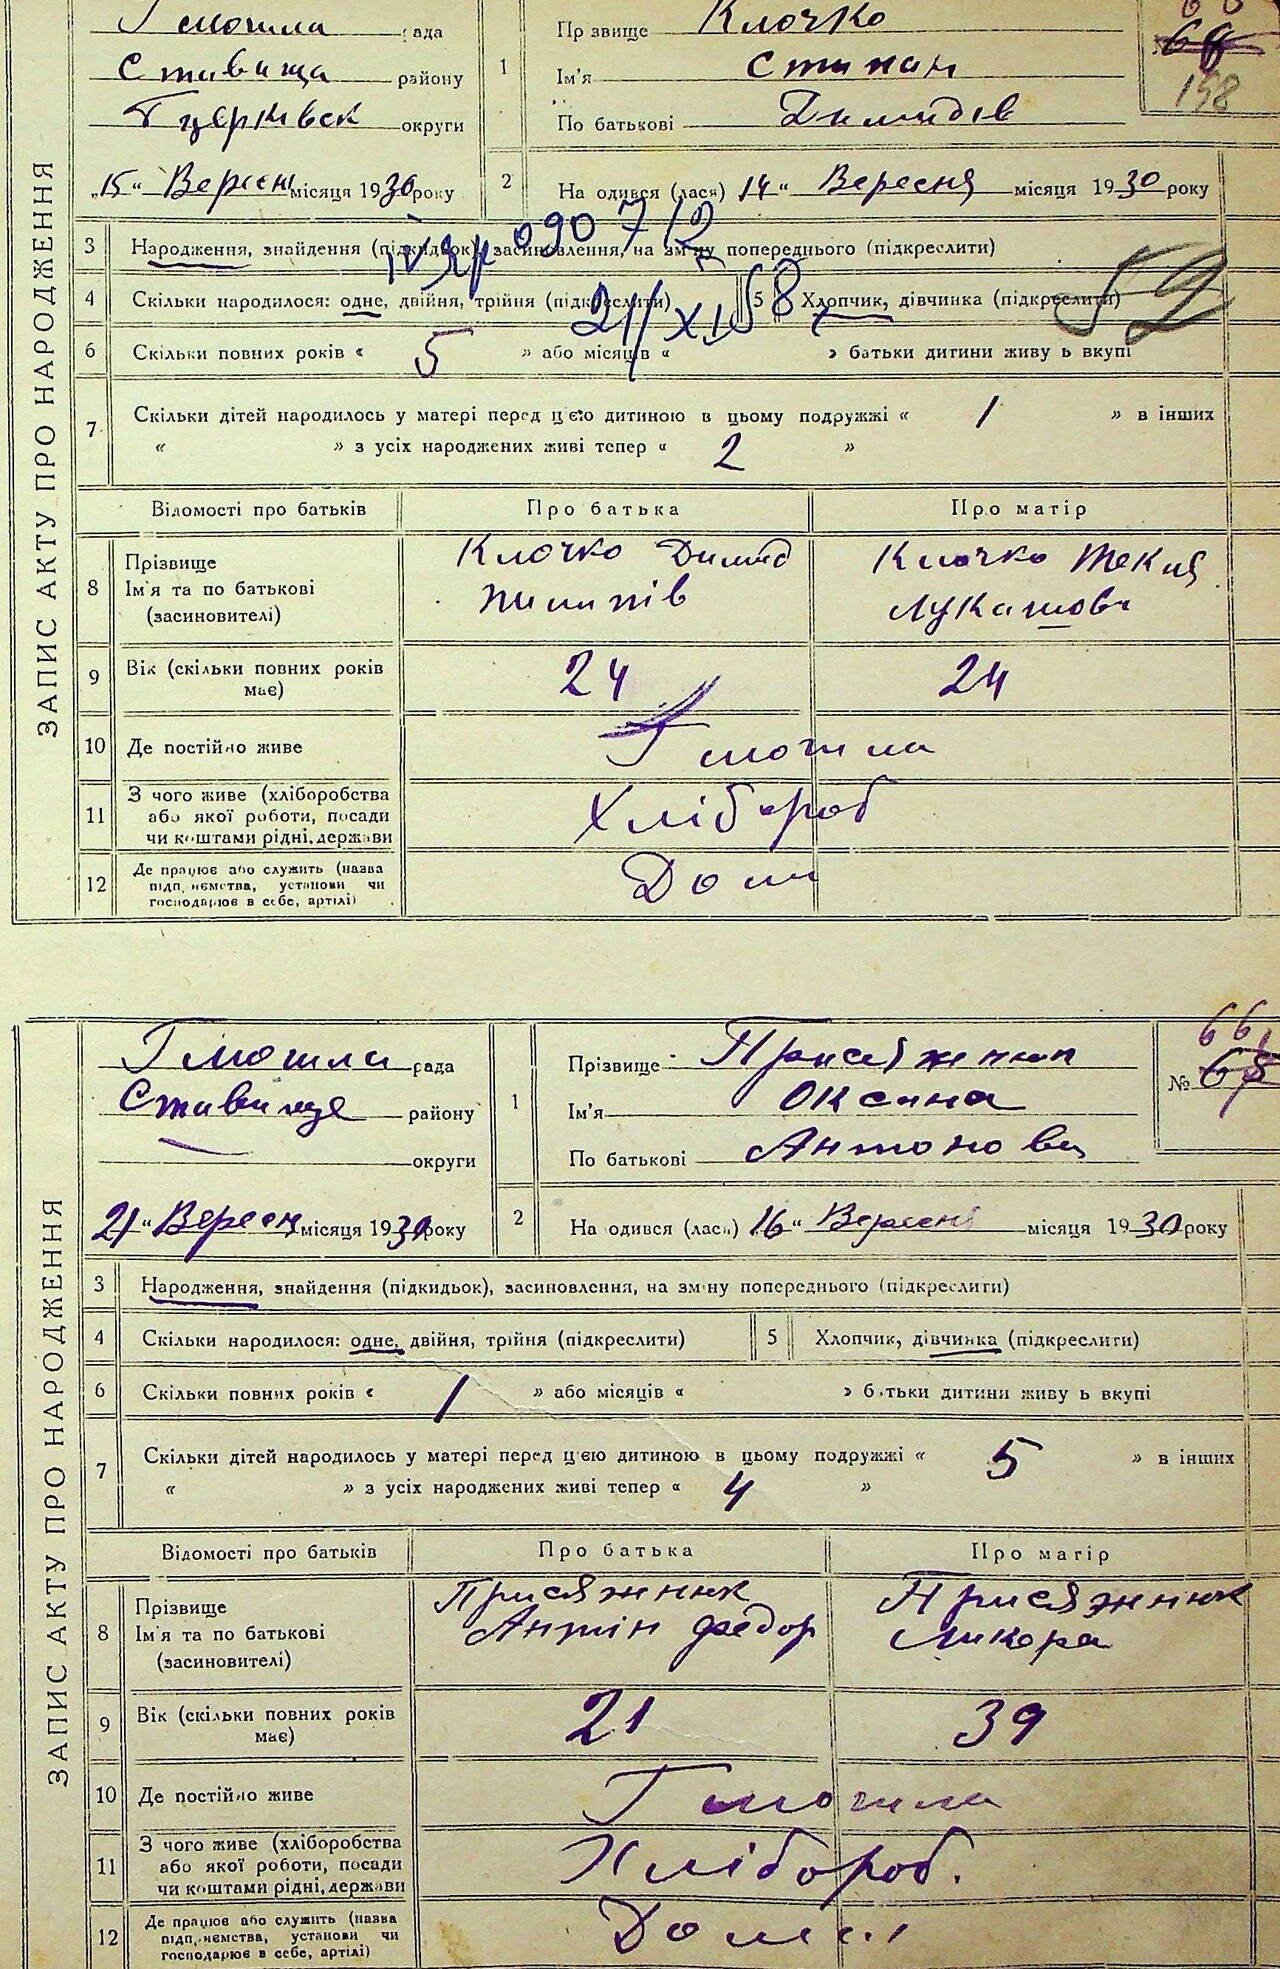 ЗАПИС АКТУ ПРО НАРОДЖЕННЯ
Гмогила рада
Ставища району
Бцерківськ округи
„15“ Вересня місяця 1930 року
1 Прізвище Клочко
Ім'я Степан
По батькові Демидів
60
158
2 На одився (лася) 14“ Вересня місяця 1930 року
3 Народження, знайдення (підкидьок), засиновлення, на зміну попереднього (підкреслити)
4 Скільки народилося: одне, двійня, трійня (підкреслити) 5 Хлопчик, дівчинка (підкреслити)
21/XI 58
52
6 Скільки повних років « 5 » або місяців « » батьки дитини живуть вкупі
7 Скільки дітей народилось у матері перед цією дитиною в цьому подружжі « 1 » в інших
« » з усіх народжених живі тепер « 2 »
Відомості про батьків Про батька Про матір
8 Прізвище
Ім'я та по батькові
(засиновителі)
Клочко Демид
Пилипів
Клочко Текля
Лукашова
9 Вік (скільки повних років
має)
24 24
10 Де постійно живе Гмогила
11 З чого живе (хліборобства
або якої роботи, посади
чи коштами рідні, держави
Хлібороб
12 Де працює або служить (назва
підприємства, установи чи
господарює в себе, артілі)
Дома
ЗАПИС АКТУ ПРО НАРОДЖЕННЯ
Гмогила рада
Ставище району
округи
21“ Вересня місяця 1930 року
1 Прізвище Присяжнюк
Ім'я Оксана
По батькові Антонова
66
№ 67
2 На одився (лася) 16“ Вересня 1930 року
3 Народження, знайдення (підкидьок), засиновлення, на зміну попереднього (підкреслити)
4 Скільки народилося: одне, двійня, трійня (підкреслити) 5 Хлопчик, дівчинка (підкреслити)
6 Скільки повних років « 1 » або місяців « » батьки дитини живуть вкупі
7 Скільки дітей народилось у матері перед цією дитиною в цьому подружжі « 5 » в інших
« » з усіх народжених живі тепер « 4 »
Відомості про батьків Про батька Про матір
8 Прізвище
Ім'я та по батькові
(засиновителі)
Присяжнюк
Антін Федор
Присяжнюк
Ликера
9 Вік (скільки повних років
має)
21 39
10 Де постійно живе Гмогила
11 З чого живе (хліборобства
або якої роботи, посади
чи коштами рідні, держави
Хлібороб.
12 Де працює або служить (назва
підприємства, установи чи
господарює в себе, артілі)
Дома